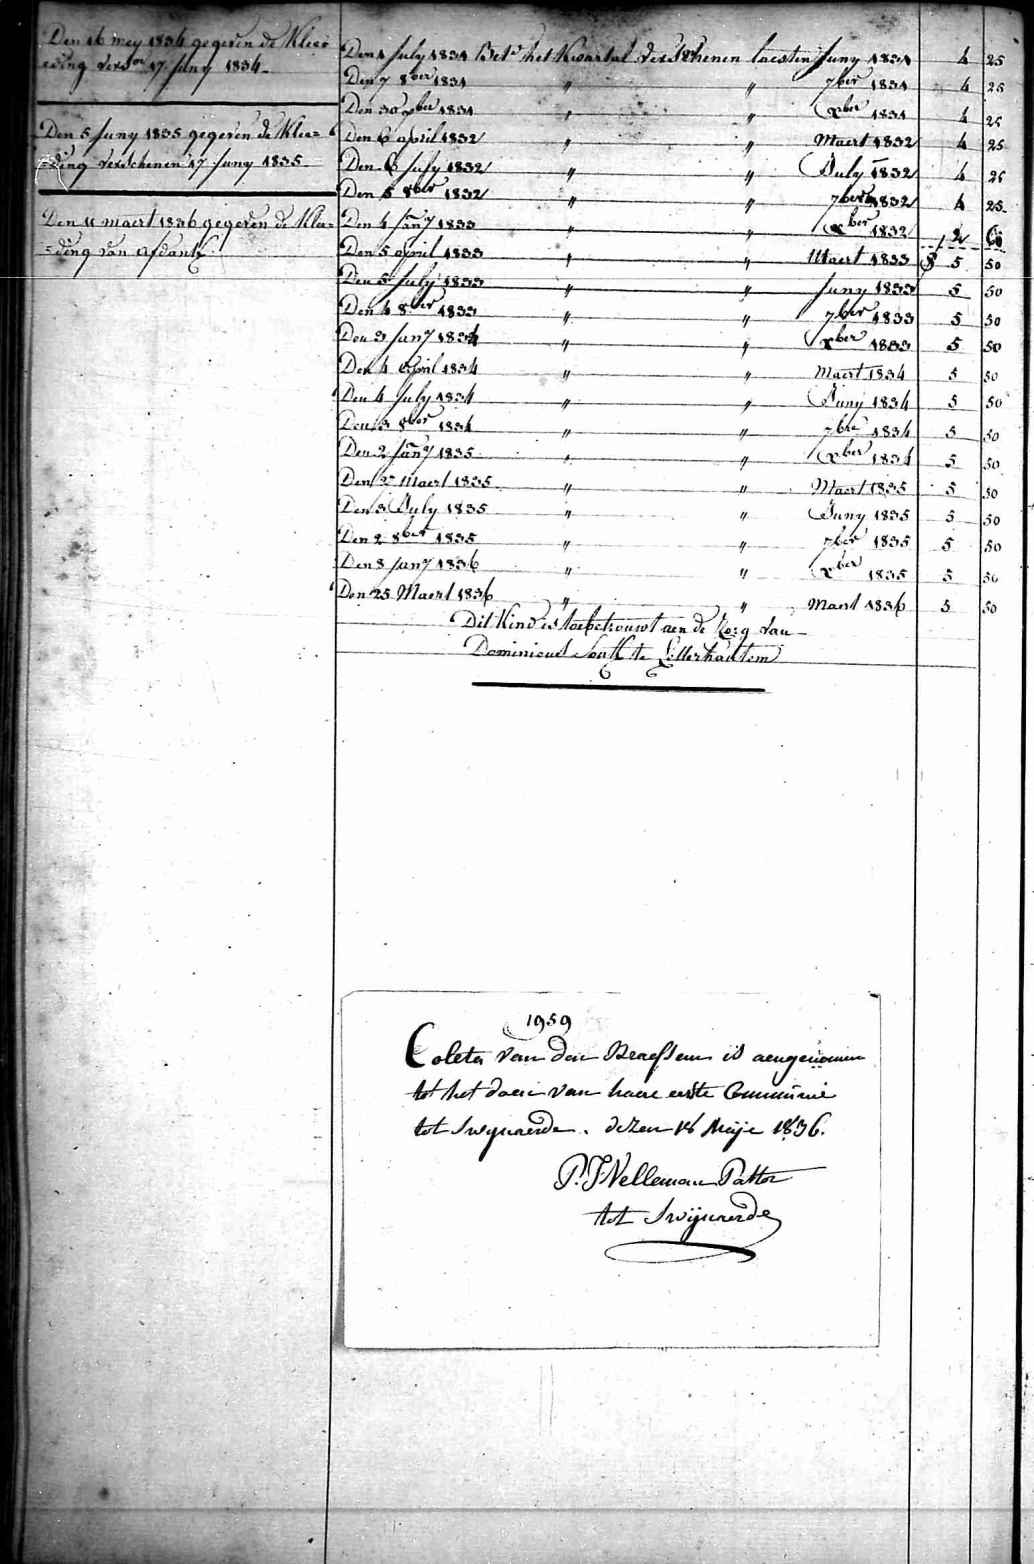 Den 16 mey 1834 gegeven de Klee=
eding vers.en 17 Juny 1834
Den 5 Juny 1835 gegeven de Klee=
=ding verschenen 17 Juny 1835
Den 11 maert 1836 gegeven de Klee=
=ding van afdank
Den 1 July 1831 Bet.d het Kwartal verschenen laesten Juny 1831 4 25
Den 7 8ber 1831 " " 7ber 1831 4 25
Den 30 xber 1831 " " xber 1831 4 25
Den 6 april 1832 " " Maert 1832 4 25
Den 6 July 1832 " " July 1832 4 25
Den 5 8ber 1832 " " 7ber 1832 4 25
Den 4 Jany 1833 " " xber 1832 2
Den 5 april 1833 " " Maert 1833 5 50
Den 5 July 1833 " " Juny 1833 5 50
Den 4 8ber 1833 " " 7ber 1833 5 50
Den 3 Jany 1834 " " xber 1833 5 50
Den 4 april 1834 " " Maert 1834 5 50
Den 4 July 1834 " " Juny 1834 5 50
Den 3 8ber 1834 " " 7bre 1834 5 50
Den 2 Jany 1835 " " xber 1834 5 50
Den Maert 1835 " " Maert 1835 5 50
Den 3 July 1835 " " Juny 1835 5 50
Den 2 8ber 1835 " " 7ber 1835 5 50
Den 8 Jany 1836 " " xber 1835 5 50
Den 25 Maert 1836 " " Maert 1836 5 50
Dit Kind is toebetrouwt aen de Zorg van
Dominicus te Letterhautem
1959
Coleta van den Braessem is aengenomen
tot het doen van haere eerste Communie
tot Swynaerde. dezen 16 Meije 1836.
P. J. Velleman Pastor
tot Swijnaerde